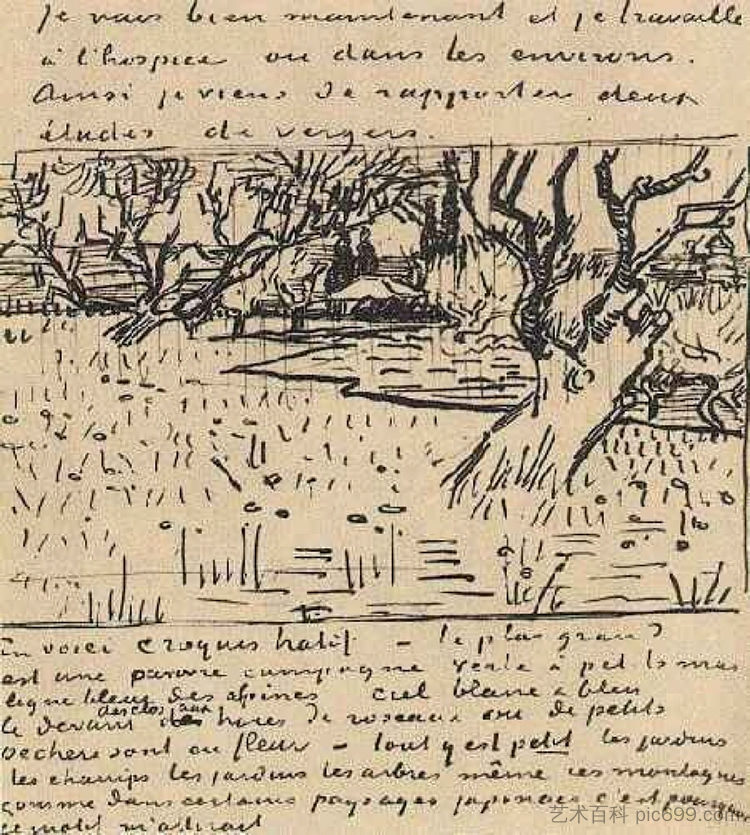 Je vais bien maintenant et je travaille
à l'hospice ou dans les environs.
Ainsi je viens de rapporter deux
études de vergers.
En voici croquis hatif – le plus grand
est une pauvre campagne verte à pet. ts mas
ligne bleue des alpines ciel blanc & bleu
le devant des clos aux haies de roseaux ou de petits
pechers sont en fleur – tout y est petit les jardins
les champs les jardins les arbres même ces montagnes
comme dans certains paysages japonais c'est pourquoi
ce motif m'attirait
艺术百科 pic699.com